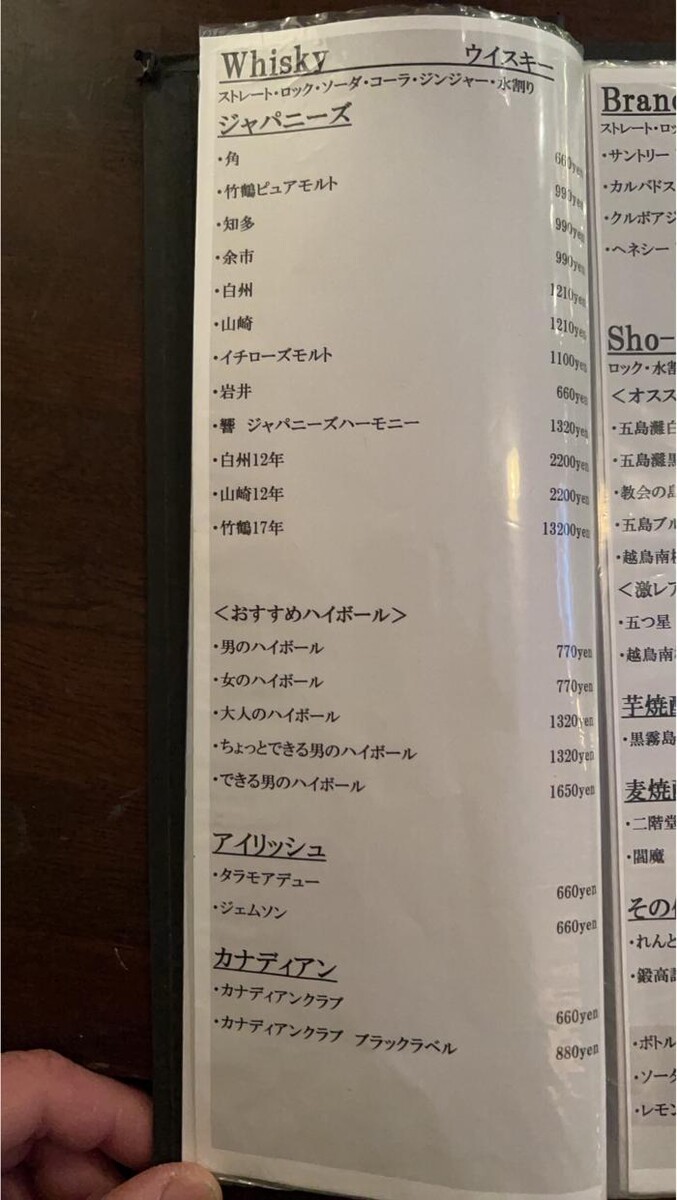 Whisky ウイスキー
ストレート・ロック・ソーダ・コーラ・ジンジャー・水割り
ジャパニーズ
・角 660yen
・竹鶴ピュアモルト 990yen
・知多 990yen
・余市 990yen
・白州 1210yen
・山崎 1210yen
・イチローズモルト 1100yen
・岩井 660yen
・響 ジャパニーズハーモニー 1320yen
・白州12年 2200yen
・山崎12年 2200yen
・竹鶴17年 13200yen
＜おすすめハイボール＞
・男のハイボール 770yen
・女のハイボール 770yen
・大人のハイボール 1320yen
・ちょっとできる男のハイボール 1320yen
・できる男のハイボール 1650yen
アイリッシュ
・タラモアデュー 660yen
・ジェムソン 660yen
カナディアン
・カナディアンクラブ 660yen
・カナディアンクラブ ブラックラベル 880yen
Bran
ストレート・ロッ
・サントリー
・カルバドス
・クルボアジ
・ヘネシー
Sho-
ロック・水割
＜オスス
・五島灘白
・五島灘黒
・教会の島
・五島ブル
・越鳥南枝
＜激レア
・五つ星
・越鳥南枝
芋焼酎
・黒霧島
麦焼酎
・二階堂
・閻魔
その他
・れんと
・鍛高譚
・ボトル
・ソーダ
・レモン